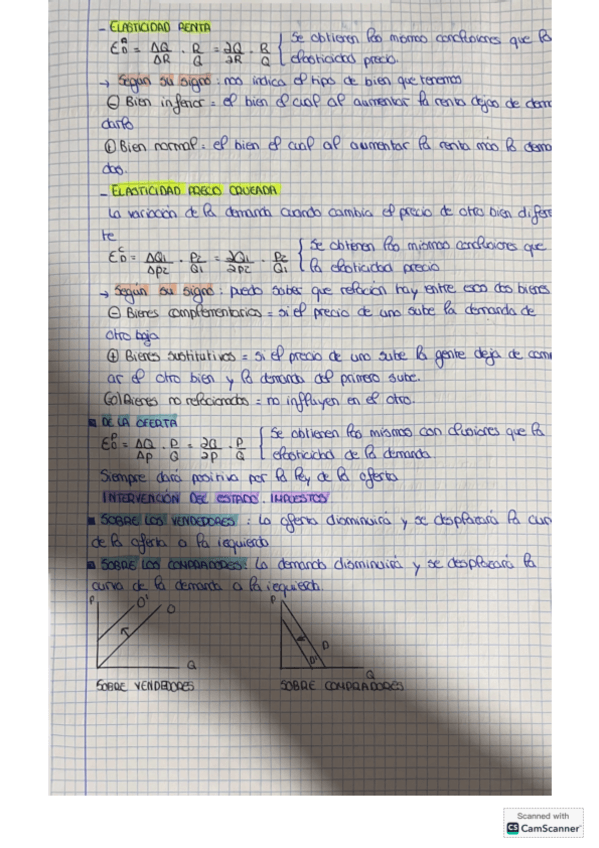 - ELASTICIDAD RENTA
E_D^R = ΔQ/ΔR · R/Q = ∂Q/∂R · R/Q { Se obtienen las mismas conclusiones que la
elasticidad precio.
→ Según su signo: nos indica el tipo de bien que tenemos
⊖ Bien inferior = el bien el cual al aumentar la renta dejas de deman
darlo
⊕ Bien normal = el bien el cual al aumentar la renta más lo deman
das.
- ELASTICIDAD PRECIO CRUZADA
La variación de la demanda cuando cambia el precio de otro bien difere
te
E_D^C = ΔQ1/Δp2 · P2/Q1 = ∂Q1/∂p2 · P2/Q1 { Se obtienen las mismas conclusiones que
la elasticidad precio
→ Según su signo: puedo saber que relación hay entre esos dos bienes
⊖ Bienes complementarios = si el precio de uno sube la demanda de
otro baja
⊕ Bienes sustitutivos = si el precio de uno sube la gente deja de com
ar el otro bien y la demanda del primero sube.
(0) Bienes no relacionados = no influyen en el otro.
▪ DE LA OFERTA
E_O^P = ΔQ/Δp · P/Q = ∂Q/∂p · P/Q { Se obtienen las mismas conclusiones que la
elasticidad de la demanda.
Siempre dará positiva por la ley de la oferta
INTERVENCIÓN DEL ESTADO. IMPUESTOS
▪ SOBRE LOS VENDEDORES: La oferta disminuirá y se desplazará la cur
de la oferta a la izquierda
▪ SOBRE LOS COMPRADORES: La demanda disminuirá y se desplazará la
curva de la demanda a la izquierda.
P O' O Q
P D D' Q
SOBRE VENDEDORES SOBRE COMPRADORES
Scanned with
CS CamScanner